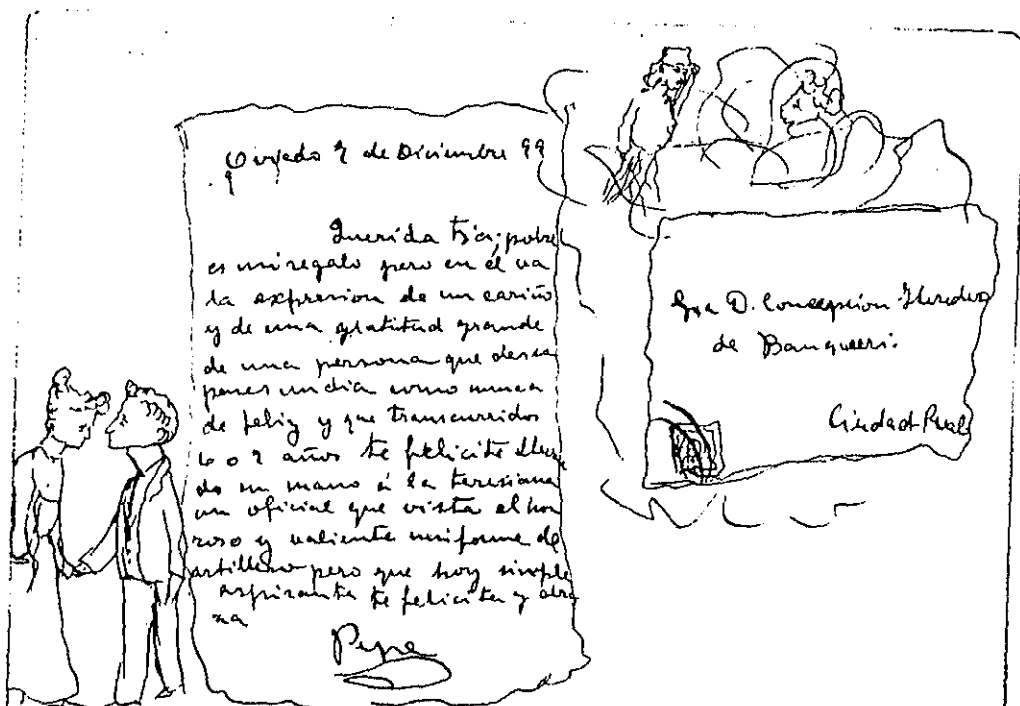 Oviedo 7 de Diciembre 99
Querida tía; pobre
es mi regalo pero en él va
la expresion de un cariño
y de una gratitud grande
de una persona que desea
pases un dia como nunca
de feliz y que transcurridos
6 o 7 años te felicite lleva
do su mano á la teresiana
un oficial que vista el hon
roso y valiente uniforme de
artillero pero que hoy simple
aspirante te felicita y abra
za
Pepe
Sra D. Concepcion Heredero
de Banqueri.
Ciudad Real